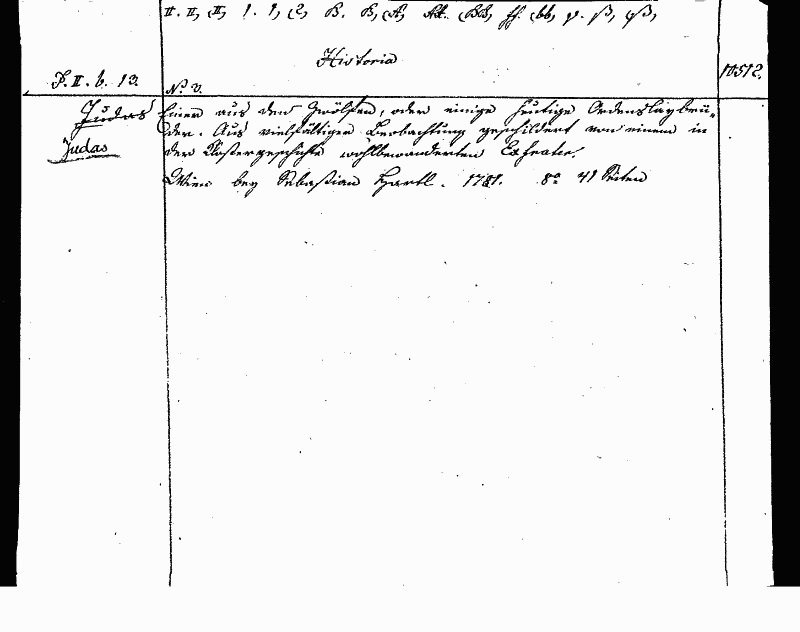 II. II, (II, 1. 1, (2, B. B, (A, AA. (BB, ff. (bb, γ. β, (β,
Historia
10512.
F. II. b. 13.
No. 3.
Judas Einer aus den Zwölfen, oder einige heutige Ordenslaybrü-
Judas der. Aus vielfältiger Beobachtung geschildert von einem in
der Klostergeschichte wohlbewanderten Exfrater.
Wien bey Sebastian Hartl. 1781. 8o 41 Seiten